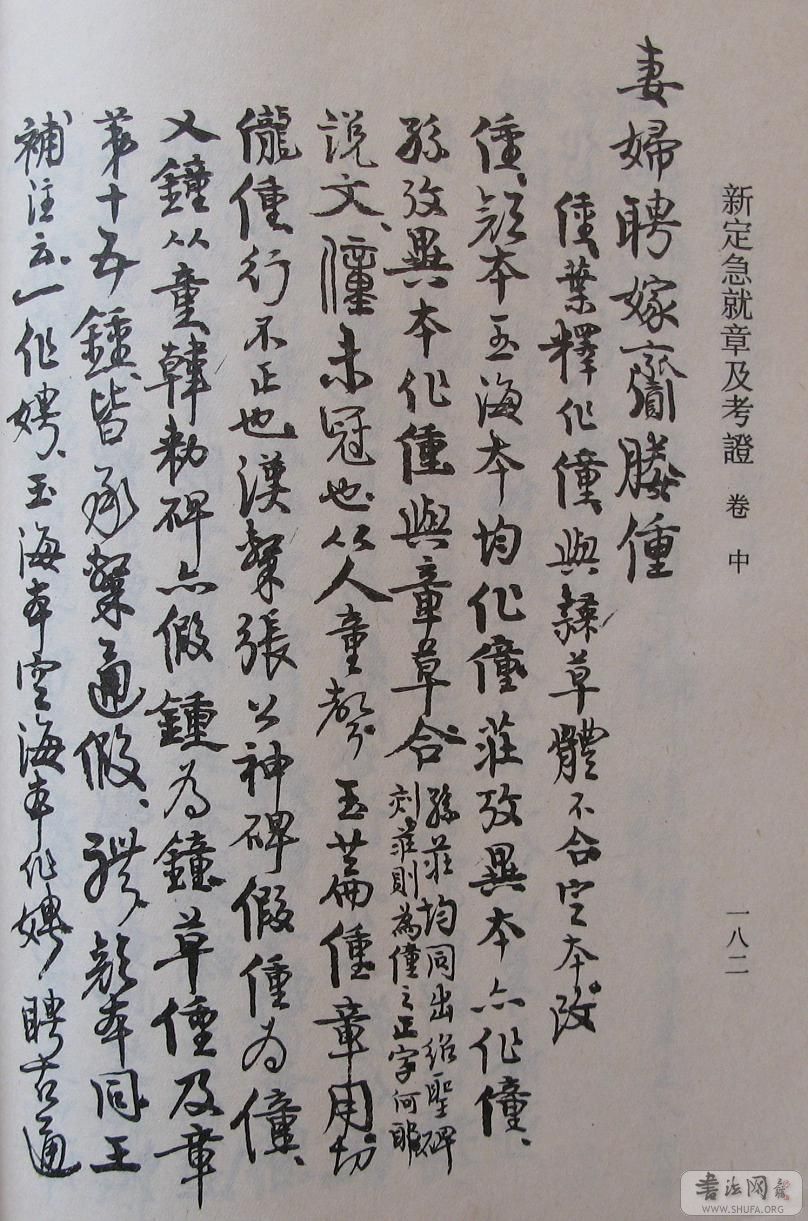 新定急就章及考證 卷中
一八二
妻婦聘嫁齎媵偅
偅葉釋作僮與隸草體不合宜本改
偅顏本玉海本均作僮莊攷異本亦作僮、
孫攷異本作偅與章草合孫莊均同出紹聖碑
刻莊則為僮之正字何耶
説文、僮未冠也从人童聲玉篇偅章用切
儱偅行不正也漢隸張公神碑假偅為僮、
又鐘从童韓勑碑亦假鍾為鐘草偅及章
第十五鍾皆承隸通假、聘顏本同王
補注云一作娉、玉海本空海本作娉、聘古通
書法网
WWW.SHUFA.ORG